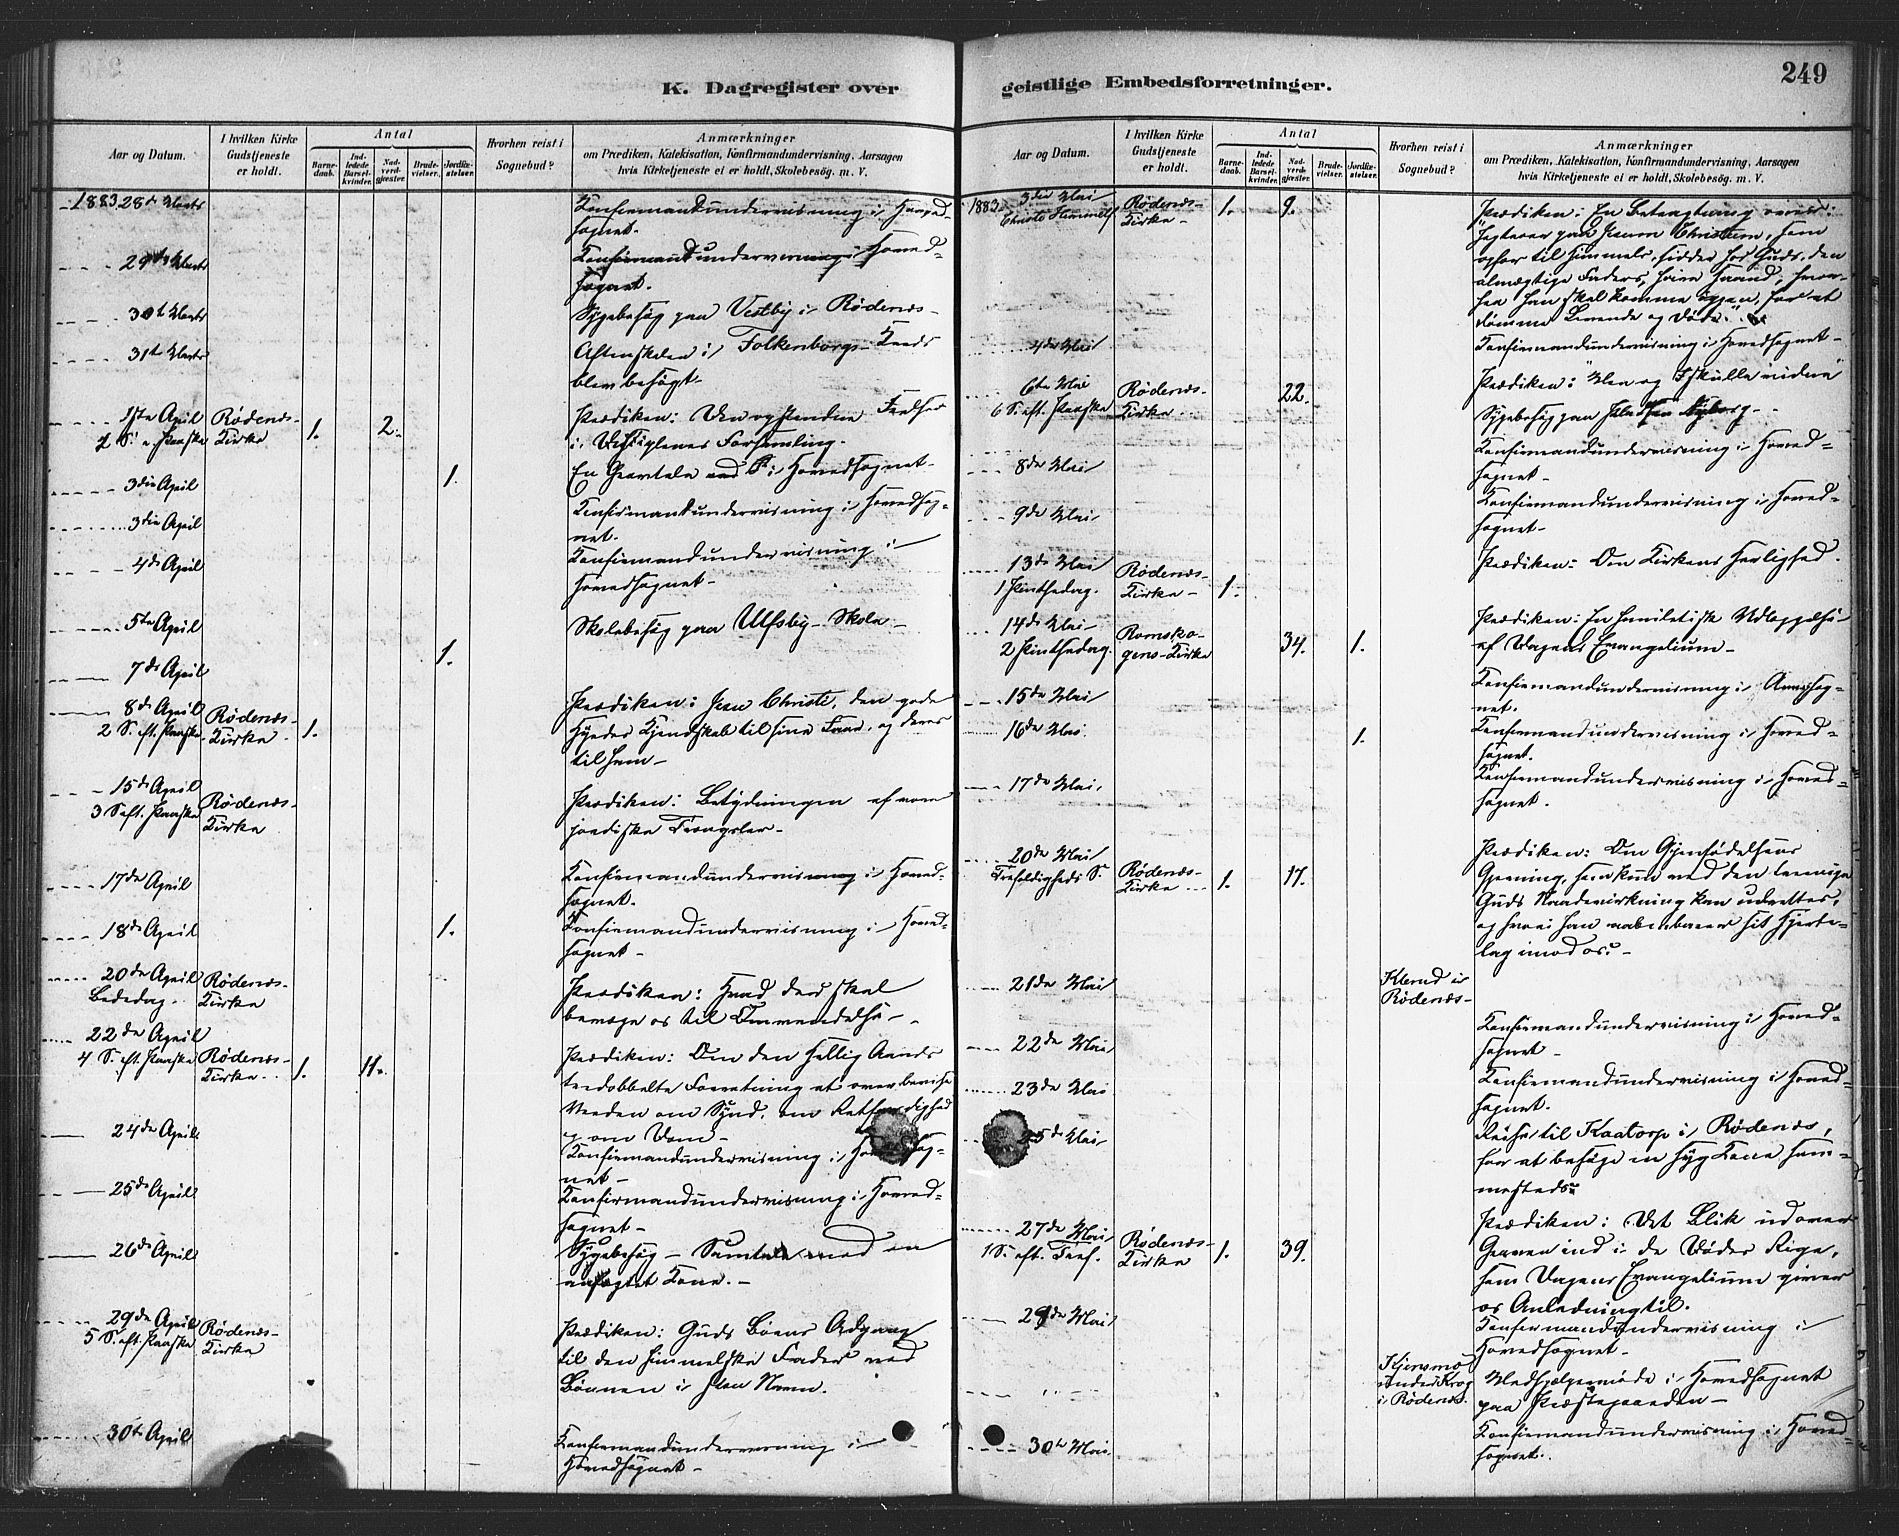 249
K. Dagregister over
geistlige Embedsforretninger.
Aar og Datum.
I hvilken Kirke
Gudstjeneste
er holdt.
Antal
Barne-
daab.
Ind-
ledede
Barsel-
kvinder.
Nad-
verd-
gjæster.
Brude-
vielser.
Jordfæ-
stelser.
Hvorhen reist i
Sognebud?
Anmærkninger
om Prædiken, Katekisation, Konfirmandundervisning, Aarsagen
hvis Kirketjeneste ei er holdt, Skolebesøg. m. V.
1883 28de Marts
Konfirmandundervisning i Hoved-
sognet.
29de Marts
Konfirmandundervisning i Hoved-
sognet.
30te Marts
Sygebesøg paa Vestby i Rødenæs-
31te Marts
Aftenskolen i Folkenborgs Kreds
blev besøgt-
1ste April
1 S. e. Paaske
Rødenæs-
Kirke
1.
2.
Prædiken: Den opstandne Frelser
i Disciplenes Forsamling.
3die April
1.
En Gravtale i Hovedsognet-
3die April
Konfirmandundervisning i Hovedsog-
net.
4de April
Konfirmandundervisning i
Hovedsognet-
5te April
Skolebesøg paa Ulfsby-Skole-
7de April
1.
8de April
2 S. eft. Paaske
Rødenæs-
Kirke.
1.
Prædiken: Jesu Christi, den gode
Hyrdes Kjendskab til sine Faar, og deres
til ham-
15de April
3 S eft. Paaske
Rødenæs-
Kirke
Prædiken: Betydningen af vore
jordiske Trængsler-
17de April
Konfirmandundervisning i Hoved-
sognet.
18de April
1.
Konfirmandundervisning i Hoved-
sognet-
20de April
Bededag.
Rødenæs-
Kirke
Prædiken: Hvad der skal
bevæge os til Omvendelse-
22de April
4 S. eft. Paaske
Rødenæs-
Kirke..
1.
11.
Prædiken: Om den Hellig Aands
tredobbelte Forretning at overbevise
Verden om Synd, om Retfærdighed
og om Dom-
24de April
Konfirmandundervisning i Hovedsog-
net-
25de April
Konfirmandundervisning i Hoved-
sognet-
26de April
Sygebesøg- Samtale med en
anfægtet Kone.-
29de April
5 S. eft. Paaske
Rødenæs-
Kirke
Prædiken: Guds Børns Adgang
til den himmelske Fader ved
Bønnen i Jesu Navn.
30te April
Konfirmandundervisning i
Hovedsognet-
Aar og Datum.
I hvilken Kirke
Gudstjeneste
er holdt.
Antal
Barne-
daab.
Ind-
ledede
Barsel-
kvinder.
Nad-
verd-
gjæster.
Brude-
vielser.
Jordfæ-
stelser.
Hvorhen reist i
Sognebud?
Anmærkninger
om Prædiken, Katekisation, Konfirmandundervisning, Aarsagen
hvis Kirketjeneste ei er holdt, Skolebesøg. m. V.
1883 3die Mai
Christi Himmelf
Rødenæs-
Kirke-
1.
9.
Prædiken: En Betragtning over:
Jeg troer paa Jesum Christum, som
opfor til Himmels, sidder hos Guds, den
almægtige Faders, høire Haand, hvor-
fra han skal komme igjen, for at
dømme Levende og Døde.
4de Mai
Konfirmandundervisning i Hovedsognet-
6te Mai
6 S. eft. Paaske
Rødenæs-
Kirke..
22.
Prædiken:
Sygebesøg paa
Konfirmandundervisning i Hoved-
8de Mai
sognet-
9de Mai
Konfirmandundervisning i Hoved-
sognet-
13de Mai
1 Pintsedag.
Rødenæs-
Kirke-
1.
Prædiken: Om Kirkens Herlighed.
14de Mai
2 Pintsedag.
Romsko-
gens-Kirke
34.
1.
Prædiken: En homiletisk Udlæggelse
af Dagens Evangelium-
15de Mai
Konfirmandundervisning i Annexsog-
net.
16de Mai
1.
Konfirmandundervisning i Hoved-
sognet.
17de Mai.
Konfirmandundervisning i Hoved-
sognet.
20de Mai
Trefoldigheds S.
Rødenæs-
Kirke...
1.
17.
Prædiken: Om Gjenfødelsens
Gjerning, som kun ved den treenige
Guds Naadevirkning kan udrettes,
og hvori han aabenbarer sit Hjerte-
lag imod os.-
21de Mai
Klerud i
Rødenæs-
22de Mai
Konfirmandundervisning i Hoved-
sognet-
23de Mai
Konfirmandundervisning i Hoved-
sognet.
25de Mai
Reise til Kaatorp i Rødenæs,
for at besøge en syg Kone sam-
mesteds.
27de Mai
1 S. eft. Tref.
Rødenæs-
Kirke
1.
39.
Prædiken: Det Blik ud over
Graven ind i de Dødes Rige,
som Dagens Evangelium giver
os Anledning til.
29de Mai
Konfirmandundervisning i
Hovedsognet-
Kjensmo
under Krog
i Rødenæs.
Medhjælpermøde i Hovedsognet
paa Præstegaarden-
30te Mai
Konfirmandundervisning i Hoved-
sognet.